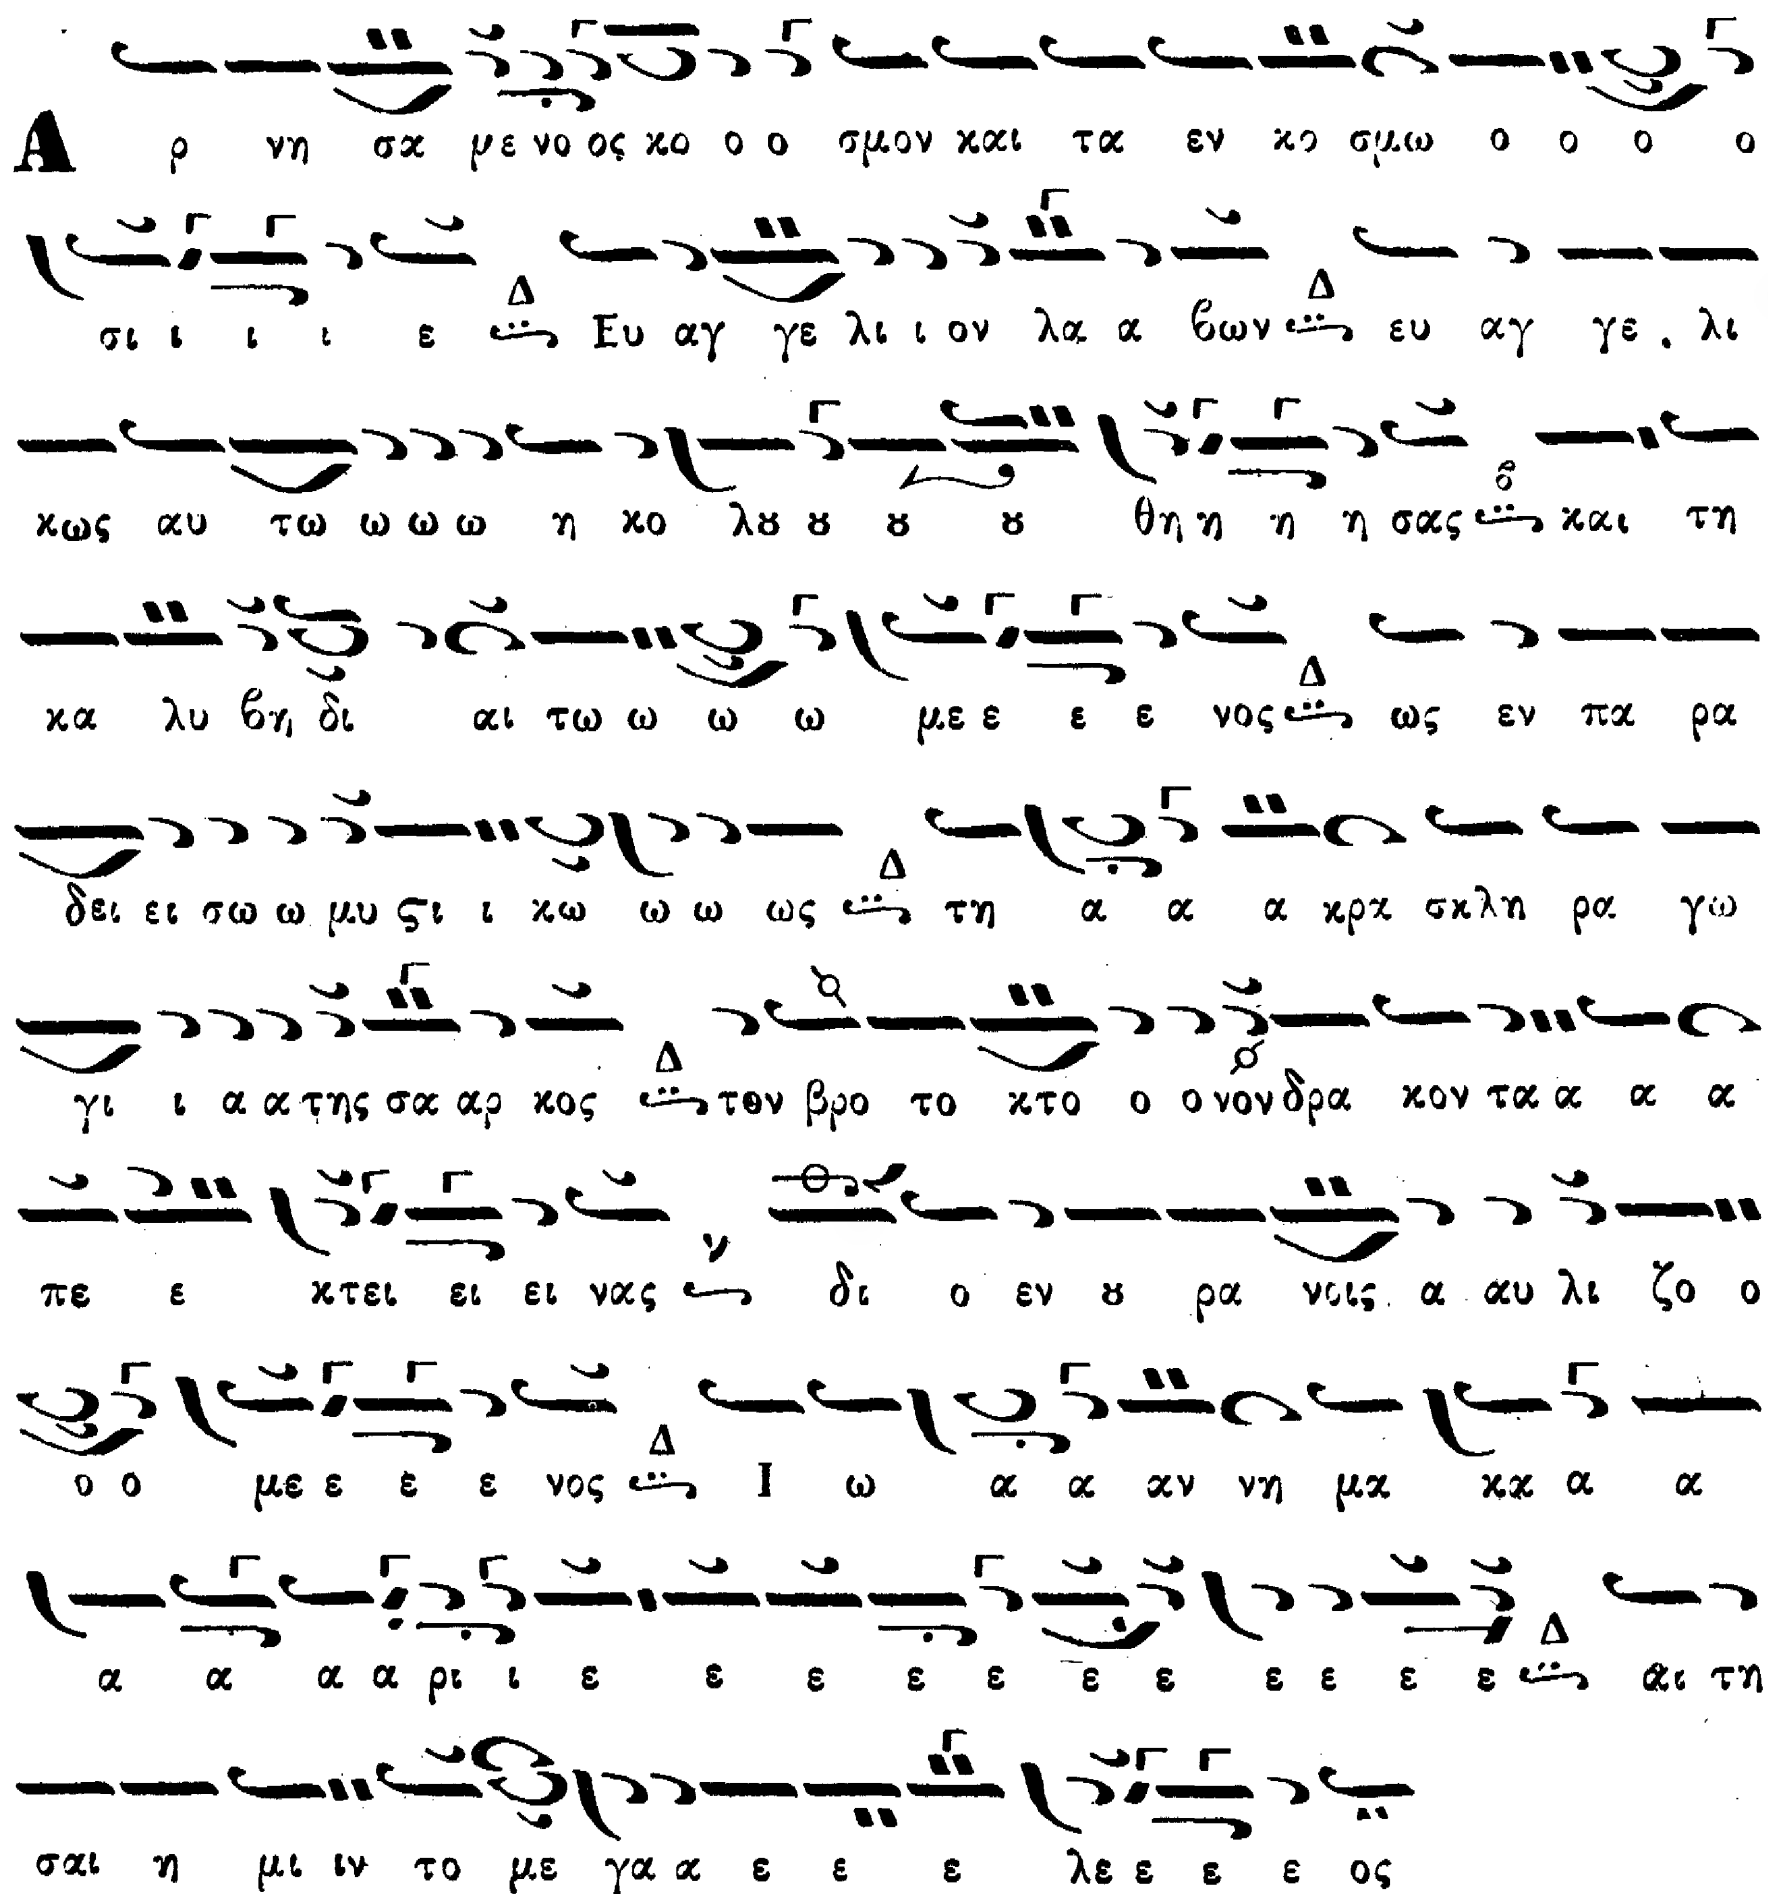 Α ρ νη σα με νο ος κο ο ο σμον και τα εν κο σμω ο ο ο ο
σι ι ι ι ε Δ Ευ αγ γε λι ι ον λα α βων Δ ευ αγ γε . λι
κως αυ τω ω ω ω η κο λȣ ȣ ȣ ȣ θη η η η σας β και τη
κα λυ βη δι αι τω ω ω ω με ε ε ε νος Δ ως εν πα ρα
δει ει σω ω μυ ϛι ι κω ω ω ως Δ τη α α α κρα σκλη ρα γω
γι ι α α της σα αρ κος Δ τον βρο το κτο ο ο νον δρα κον τα α α α
πε ε κτει ει ει νας ν δι ο εν ȣ ρα νοις α αυ λι ζο ο
ο ο με ε ε ε νος Δ Ι ω α α αν νη μα κα α α
α α α α ρι ι ε ε ε ε ε ε ε ε ε ε ε Δ αι τη
σαι η μι ιν το με γα α ε ε ε λε ε ε ε ος